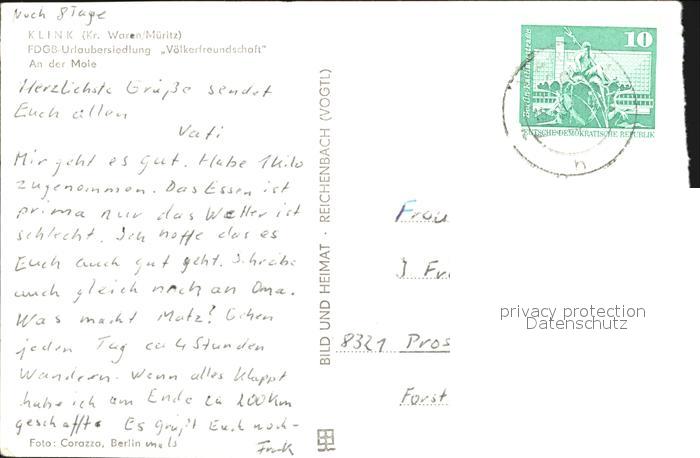 Noch 8 Tage
KLINK (Kr. Waren/Müritz)
FDGB-Urlaubersiedlung „Völkerfreundschaft"
An der Mole
Herzlichste Grüße sendet
Euch allen
Vati
Mir geht es gut. Habe 1 Kilo
zugenommen. Das Essen ist
prima nur das Wetter ist
schlecht. Ich hoffe das es
Euch auch gut geht. Schreibe
auch gleich noch an Oma.
Was macht Matz? Gehen
jeden Tag ca 4 Stunden
Wandern. Wenn alles klappt
habe ich am Ende ca 200 Km
geschafft. Es grüßt Euch noch-
mals
Foto: Corazza, Berlin
BILD UND HEIMAT · REICHENBACH (VOGTL)
10
DEUTSCHE DEMOKRATISCHE REPUBLIK
Frau
J Fr
8321 Pros
Forst
privacy protection
Datenschutz